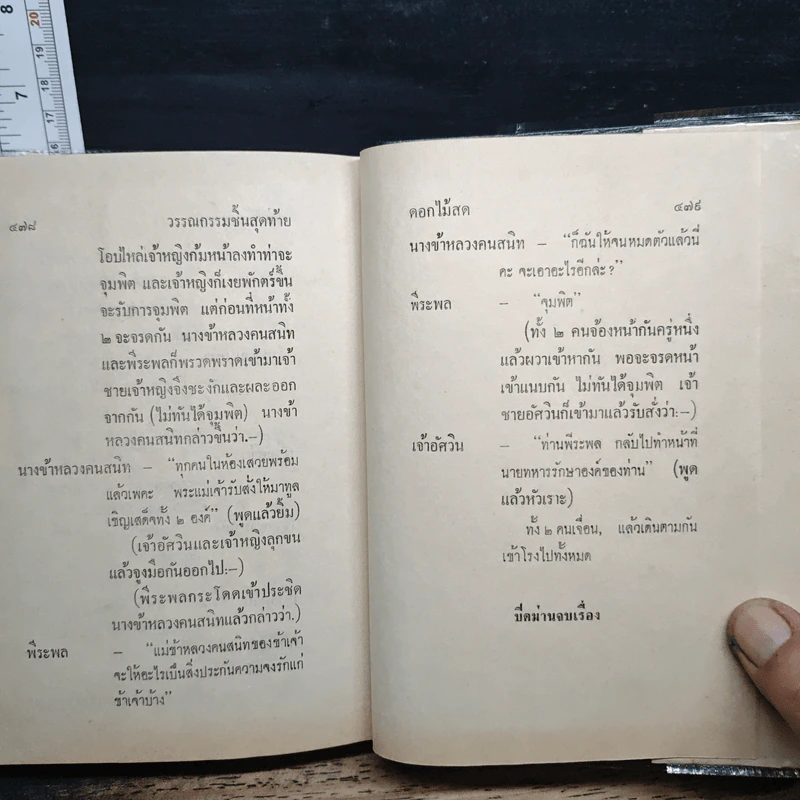 8
20
19
18
7
17
16
๔๗๘ วรรณกรรมชิ้นสุดท้าย
โอบไหล่เจ้าหญิงก้มหน้าลงทำท่าจะ
จุมพิต และเจ้าหญิงก็เงยพักตร์ขึ้น
จะรับการจุมพิต แต่ก่อนที่หน้าทั้ง
๒ จะจรดกัน นางข้าหลวงคนสนิท
และพีระพลก็พรวดพราดเข้ามาเจ้า
ชายเจ้าหญิงจึงชะงักและผละออก
จากกัน (ไม่ทันได้จุมพิต) นางข้า
หลวงคนสนิทกล่าวขึ้นว่า.—)
นางข้าหลวงคนสนิท — “ทุกคนในห้องเสวยพร้อม
แล้วเพคะ พระแม่เจ้ารับสั่งให้มาทูล
เชิญเสด็จทั้ง ๒ องค์” (พูดแล้วยิ้ม)
(เจ้าอัศวินและเจ้าหญิงลุกขน
แล้วจูงมือกันออกไป:—)
(พีระพลกระโดดเข้าประชิด
นางข้าหลวงคนสนิทแล้วกล่าวว่า.)
พีระพล — “แม่ข้าหลวงคนสนิทของข้าเจ้า
จะให้อะไรเป็นสิ่งประกันความจงรักแก่
ข้าเจ้าบ้าง”
ดอกไม้สด ๔๗๙
นางข้าหลวงคนสนิท — “ก็ฉันให้จนหมดตัวแล้วนี่
คะ จะเอาอะไรอีกล่ะ?”
พีระพล — “จุมพิต”
(ทั้ง ๒ คนจ้องหน้ากันครู่หนึ่ง
แล้วผวาเข้าหากัน พอจะจรดหน้า
เข้าแนบกัน ไม่ทันได้จุมพิต เจ้า
ชายอัศวินก็เข้ามาแล้วรับสั่งว่า:—)
เจ้าอัศวิน — “ท่านพีระพล กลับไปทำหน้าที่
นายทหารรักษาองค์ของท่าน” (พูด
แล้วหัวเราะ)
ทั้ง ๒ คนเจื่อน, แล้วเดินตามกัน
เข้าโรงไปทั้งหมด
ปิดม่านจบเรื่อง